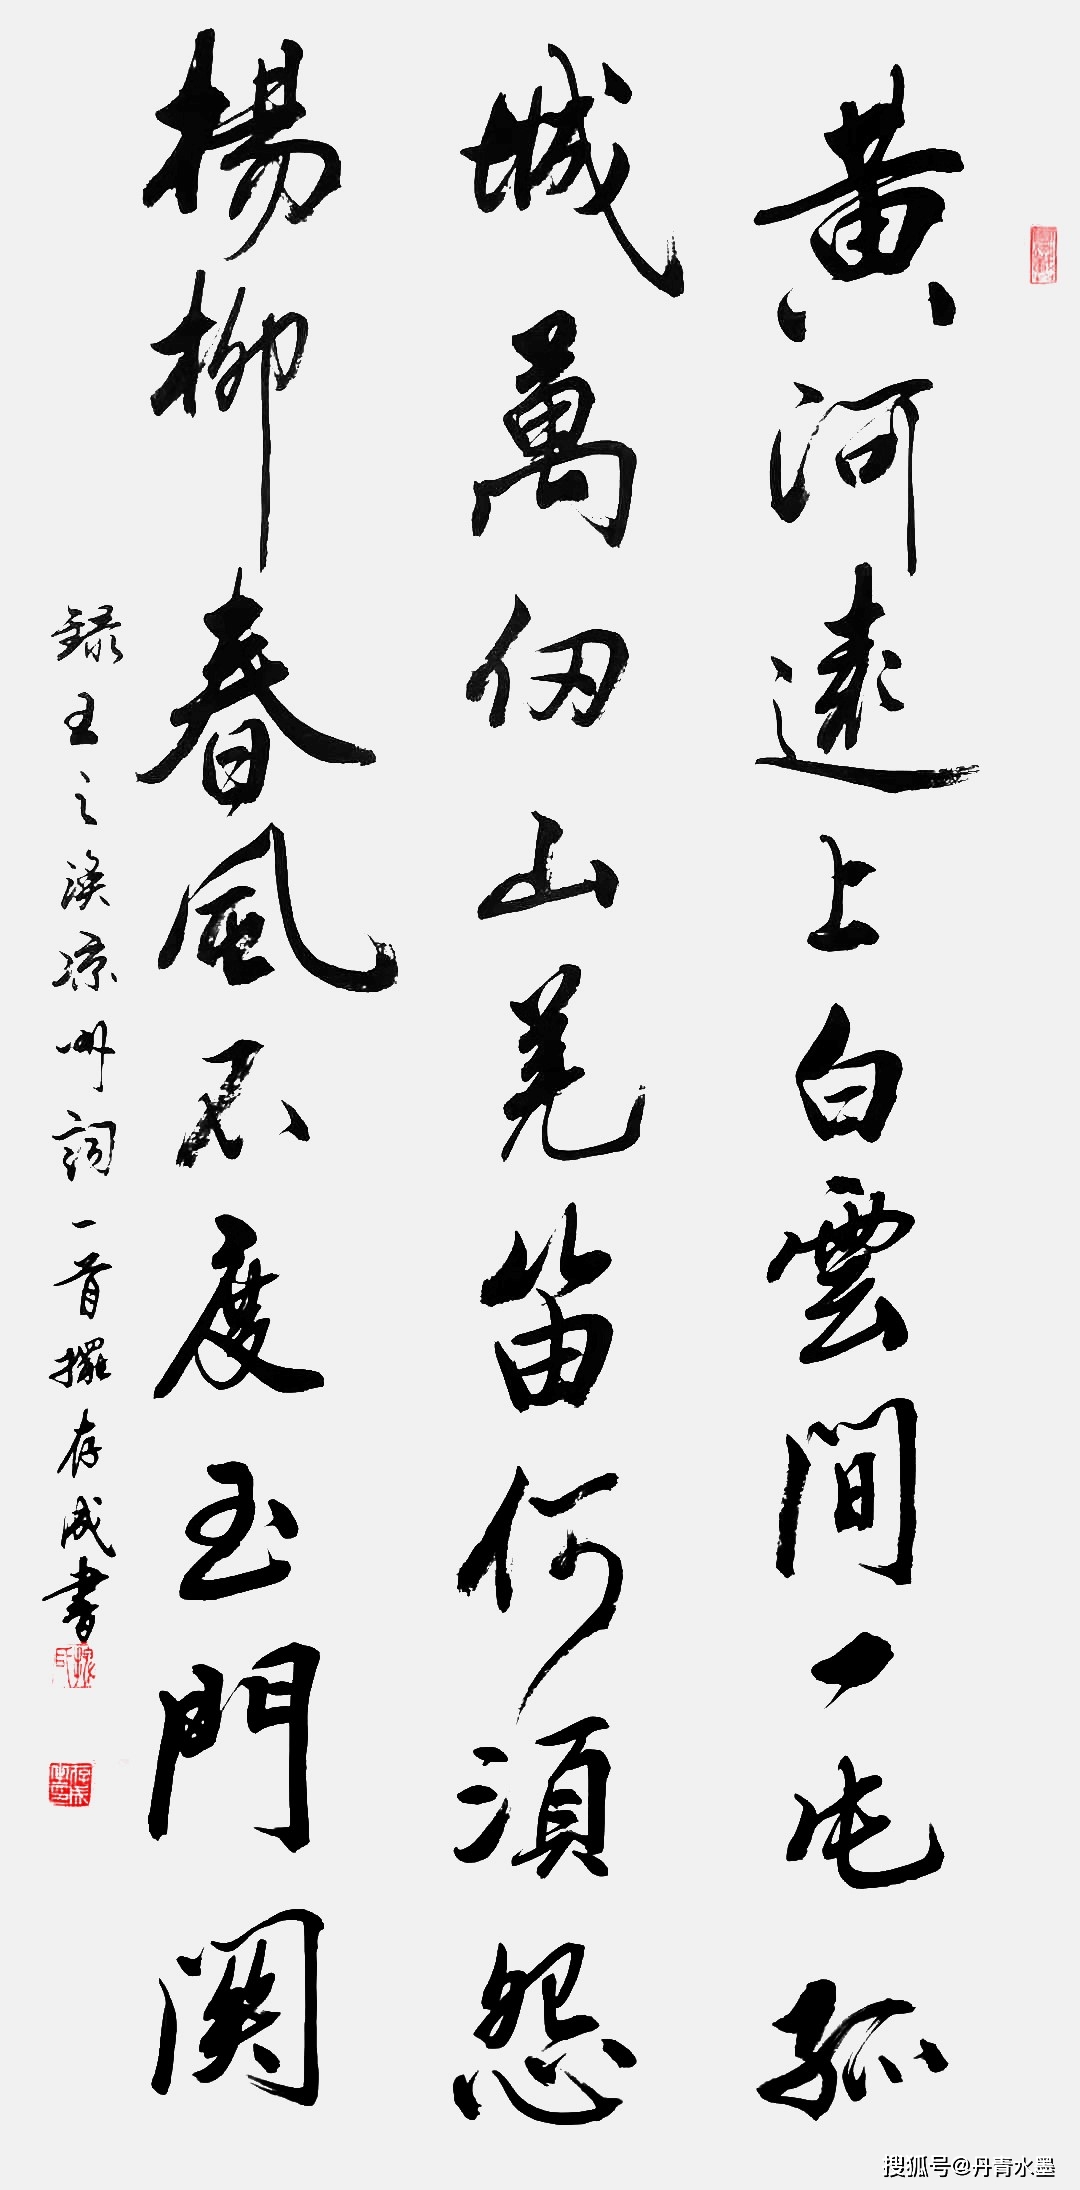 黄河遠上白雲間一片孤
城萬仞山羌笛何須怨
楊柳春風不度玉門関
録王之渙凉州詞一首存成書
搜狐号@丹青水墨